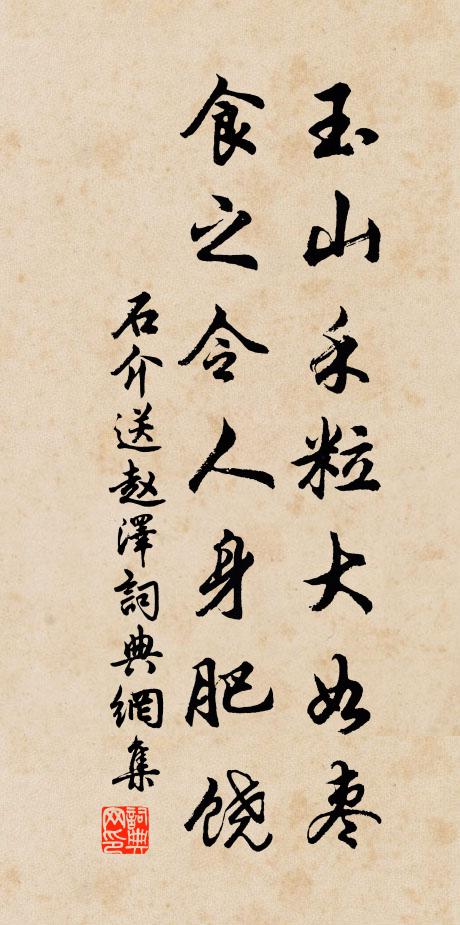 玉山禾粒大如枣
食之令人身肥饶
石介送赵泽詞典網集
詞典網印